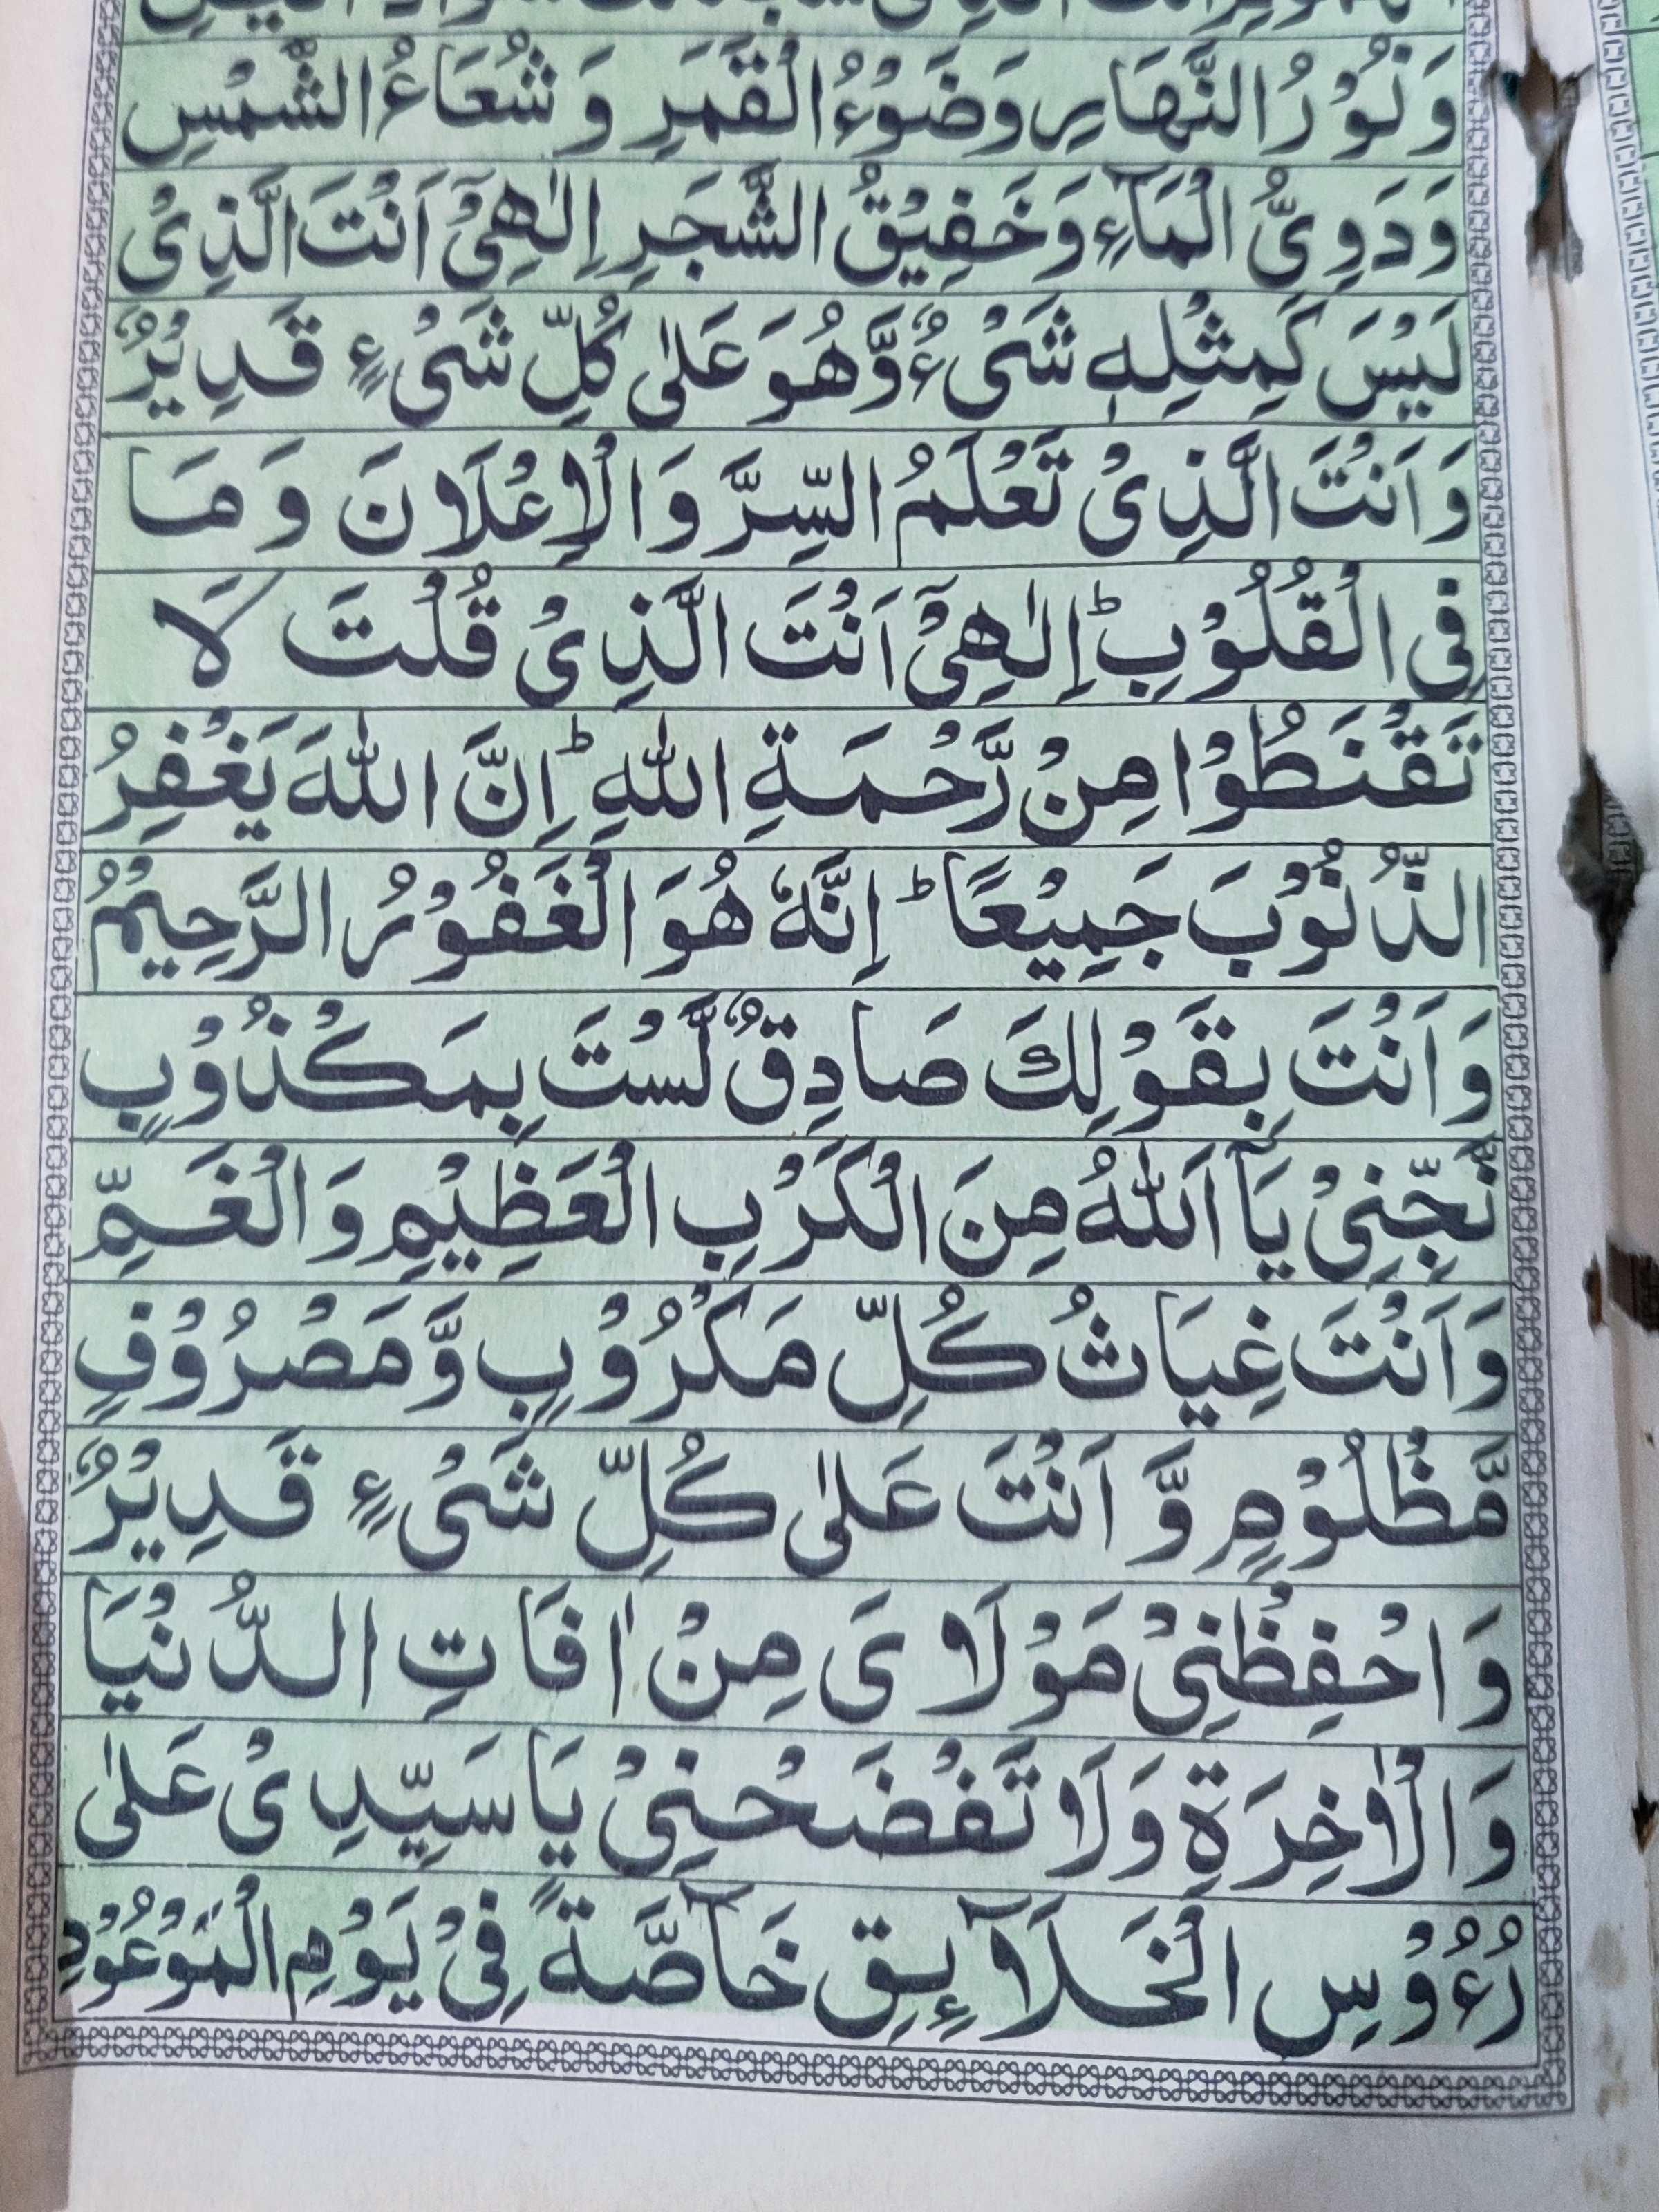 وَنُوْرُ النَّهَارِ وَضَوْءُ الْقَمَرِ وَشُعَاعُ الشَّمْسِ
وَدَوِيُّ الْمَآءِ وَخَفِيْقُ الشَّجَرِ اِلٰهِيْٓ اَنْتَ الَّذِىْ
لَيْسَ كَمِثْلِهٖ شَىْءٌ وَّهُوَ عَلٰى كُلِّ شَىْءٍ قَدِيْرٌ
وَاَنْتَ الَّذِىْ تَعْلَمُ السِّرَّ وَالْاِعْلَانَ وَمَا
فِى الْقُلُوْبِ ؕ اِلٰهِيْٓ اَنْتَ الَّذِىْ قُلْتَ لَا
تَقْنَطُوْا مِنْ رَّحْمَةِ اللّٰهِ ؕ اِنَّ اللّٰهَ يَغْفِرُ
الذُّنُوْبَ جَمِيْعًا ؕ اِنَّهٗ هُوَ الْغَفُوْرُ الرَّحِيْمُ
وَاَنْتَ بِقَوْلِكَ صَادِقٌ لَّسْتَ بِمَكْذُوْبٍ
نَّجِّنِىْ يَآ اَللّٰهُ مِنَ الْكَرْبِ الْعَظِيْمِ وَالْغَمِّ
وَاَنْتَ غِيَاثُ كُلِّ مَكْرُوْبٍ وَّمَصْرُوْفٍ
مَّظْلُوْمٍ وَّاَنْتَ عَلٰى كُلِّ شَىْءٍ قَدِيْرٌ
وَاحْفِظْنِىْ مَوْلَاىَ مِنْ اٰفَاتِ الدُّنْيَا
وَالْاٰخِرَةِ وَلَا تَفْضَحْنِىْ يَا سَيِّدِىْ عَلٰى
رُءُوْسِ الْخَلَآئِقِ خَآصَّةً فِىْ يَوْمِ الْمَوْعُوْدِ